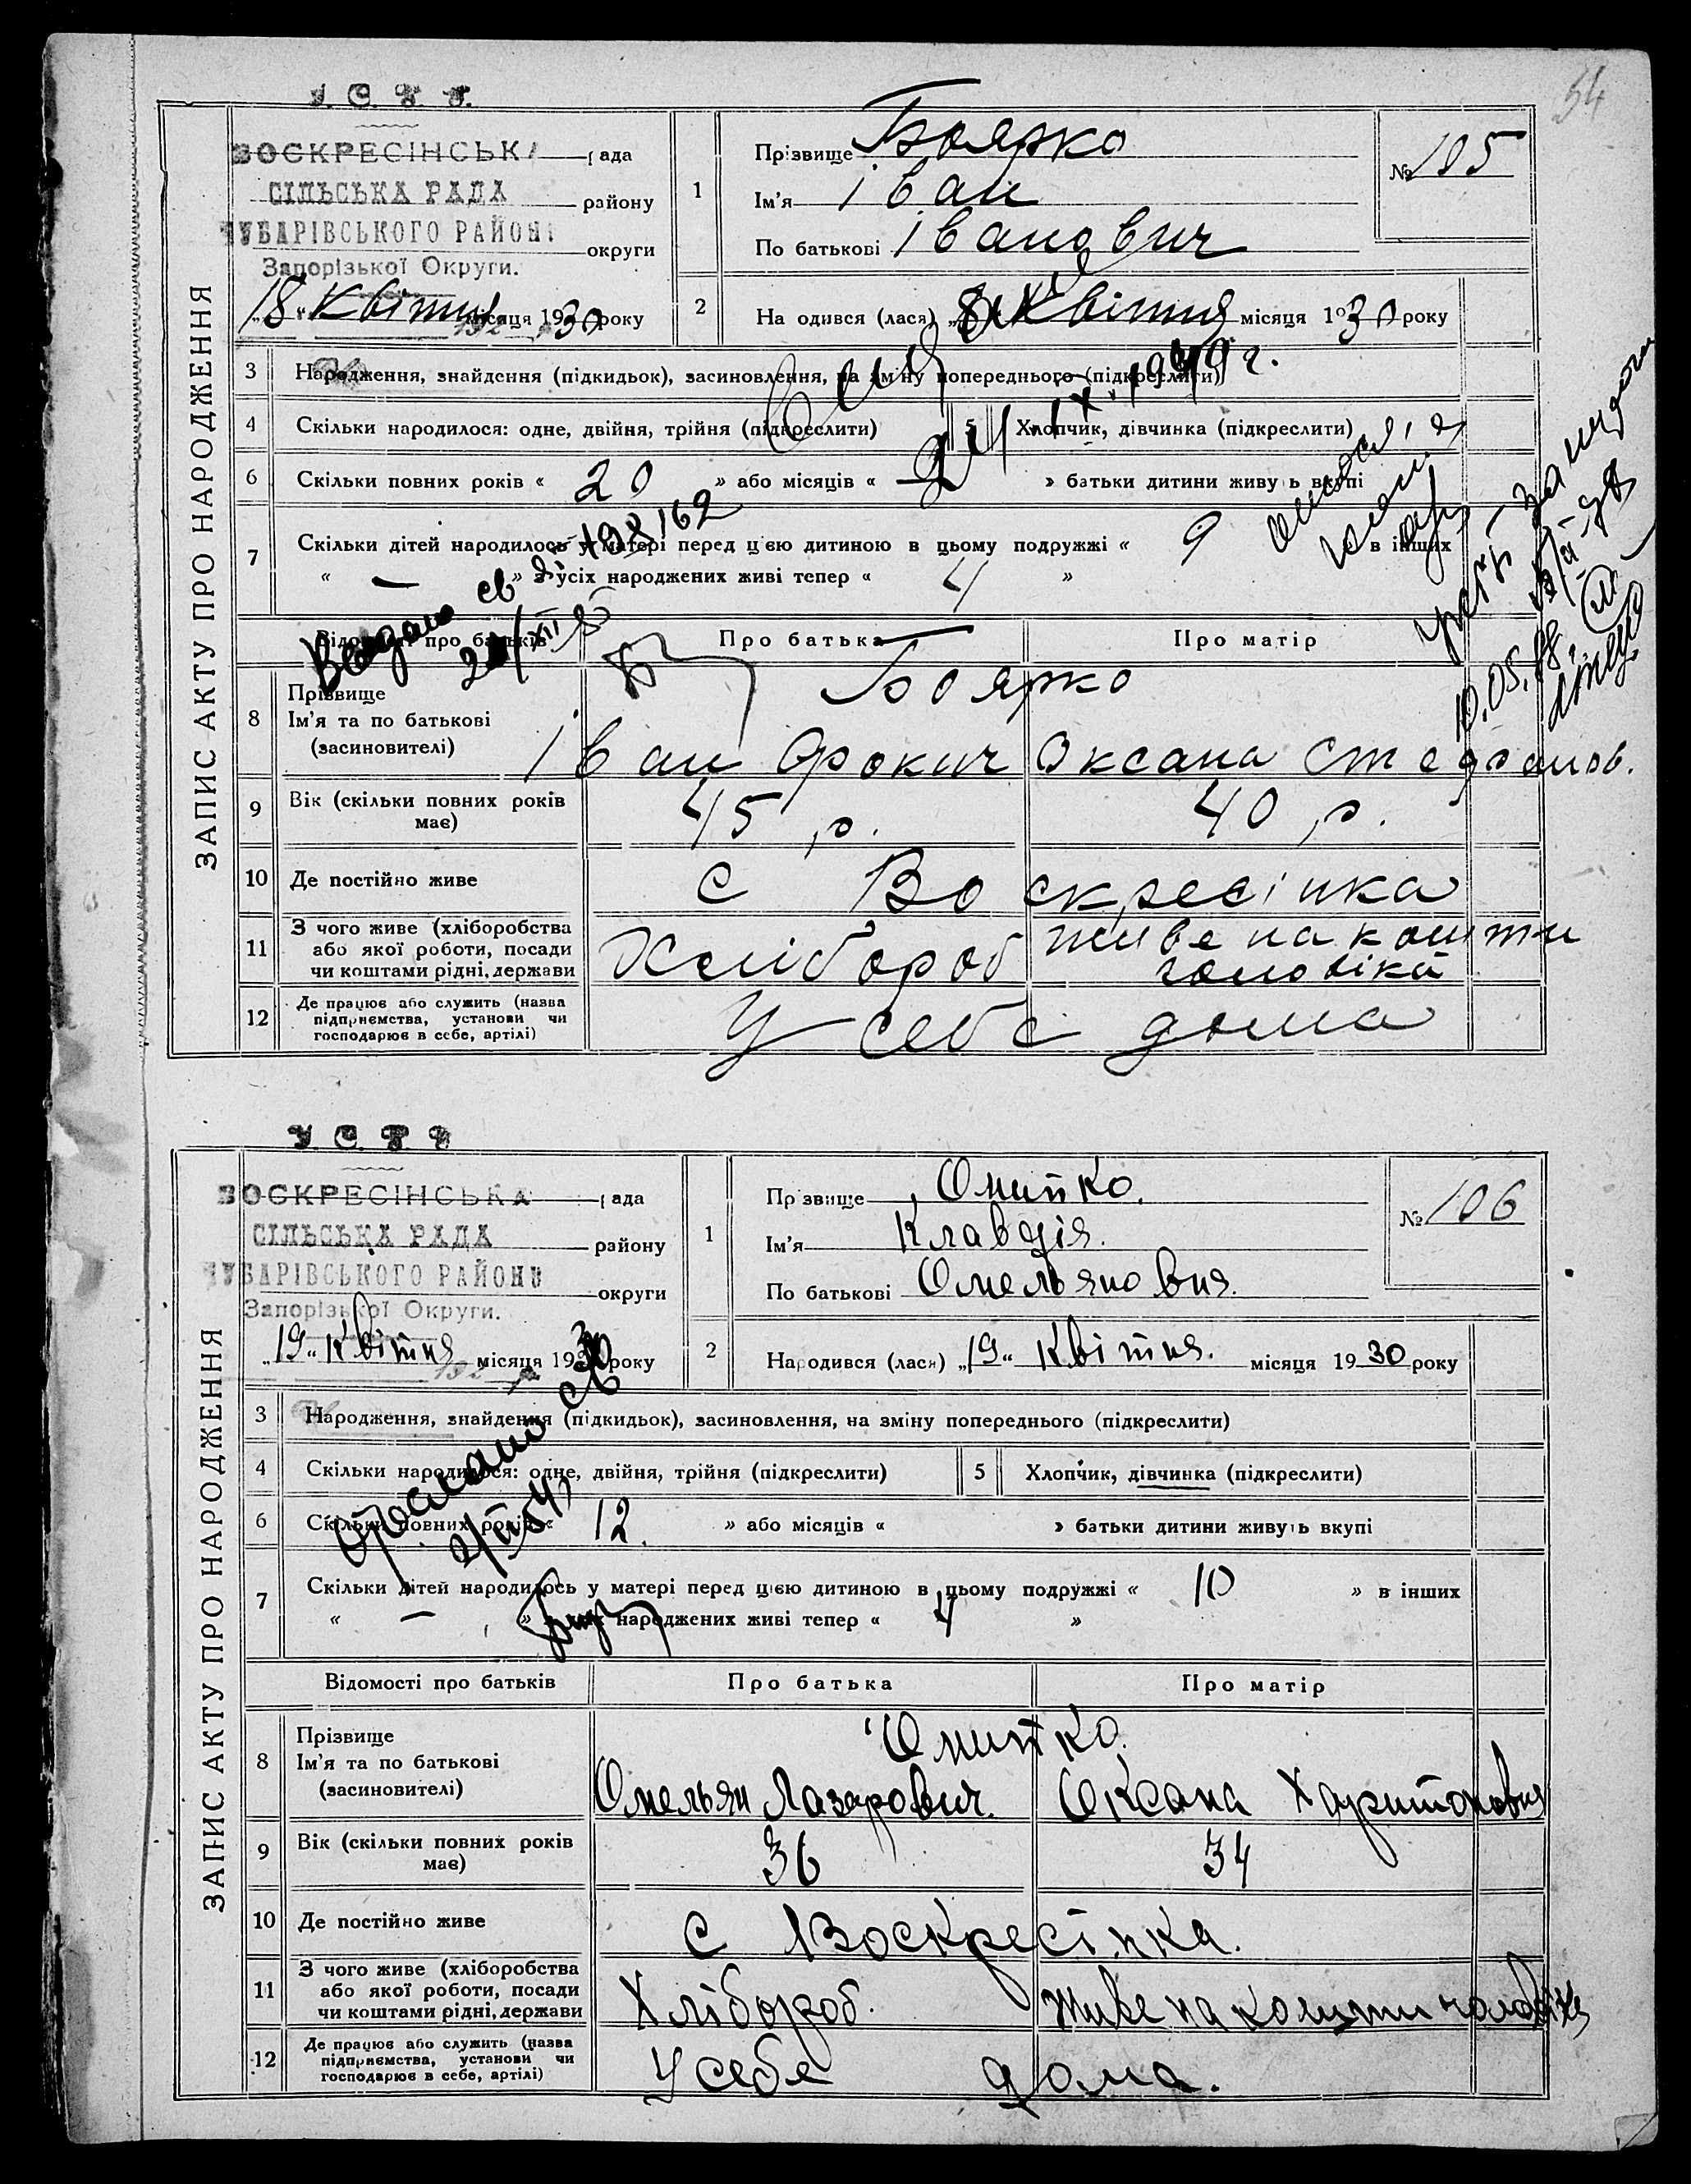 54
У. С. Р. Р.
ВОСКРЕСІНСЬКА рада
СІЛЬСЬКА РАДА району
ЧУБАРІВСЬКОГО РАЙОНУ округи
Запорізької Округи.
"18" Квітня місяця 1930 року
ЗАПИС АКТУ ПРО НАРОДЖЕННЯ
1 Прізвище Боярко
Ім'я Іван
По батькові Іванович
№ 105
2 Народився (лася) Квітня місяця 1930 року
3 Народження, знайдення (підкидьок), засиновлення, на зміну попереднього (підкреслити)
4 Скільки народилося: одне, двійня, трійня (підкреслити) 5 Хлопчик, дівчинка (підкреслити)
6 Скільки повних років « 20 » або місяців « » батьки дитини живуть вкупі
7 Скільки дітей народилось у матері перед цією дитиною в цьому подружжі « 9 » в інших
« — » з усіх народжених живі тепер « 4 »
Відомості про батьків Про батька Про матір
8 Прізвище
Ім'я та по батькові
(засиновителі)
Боярко
Іван Фокич Оксана Стефанов.
9 Вік (скільки повних років має) 45 р. 40 р.
10 Де постійно живе с Воскресінка
11 З чого живе (хліборобства або якої роботи, посади чи коштами рідні, держави Хлібороб живе на кошти чоловіка
12 Де працює або служить (назва підприємства, установи чи господарює в себе, артілі) У себе дома
10.05.88.
У. С. Р. Р.
ВОСКРЕСІНСЬКА рада
СІЛЬСЬКА РАДА району
ЧУБАРІВСЬКОГО РАЙОНУ округи
Запорізької Округи.
"19" Квітня місяця 1930 року
ЗАПИС АКТУ ПРО НАРОДЖЕННЯ
1 Прізвище Омитко.
Ім'я Клавдія.
По батькові Омельяновня.
№ 106
2 Народився (лася) "19" Квітня. місяця 1930 року
3 Народження, знайдення (підкидьок), засиновлення, на зміну попереднього (підкреслити)
4 Скільки народилося: одне, двійня, трійня (підкреслити) 5 Хлопчик, дівчинка (підкреслити)
6 Скільки повних років « 12. » або місяців « » батьки дитини живуть вкупі
7 Скільки дітей народилось у матері перед цією дитиною в цьому подружжі « 10 » в інших
« — » з усіх народжених живі тепер « 4 »
Відомості про батьків Про батька Про матір
8 Прізвище
Ім'я та по батькові
(засиновителі)
Омитко.
Омельян Лазарович. Оксана Харитоновня
9 Вік (скільки повних років має) 36 34
10 Де постійно живе с Воскресінка.
11 З чого живе (хліборобства або якої роботи, посади чи коштами рідні, держави Хлібороб. живе на кошти чоловіка
12 Де працює або служить (назва підприємства, установи чи господарює в себе, артілі) У себе дома.